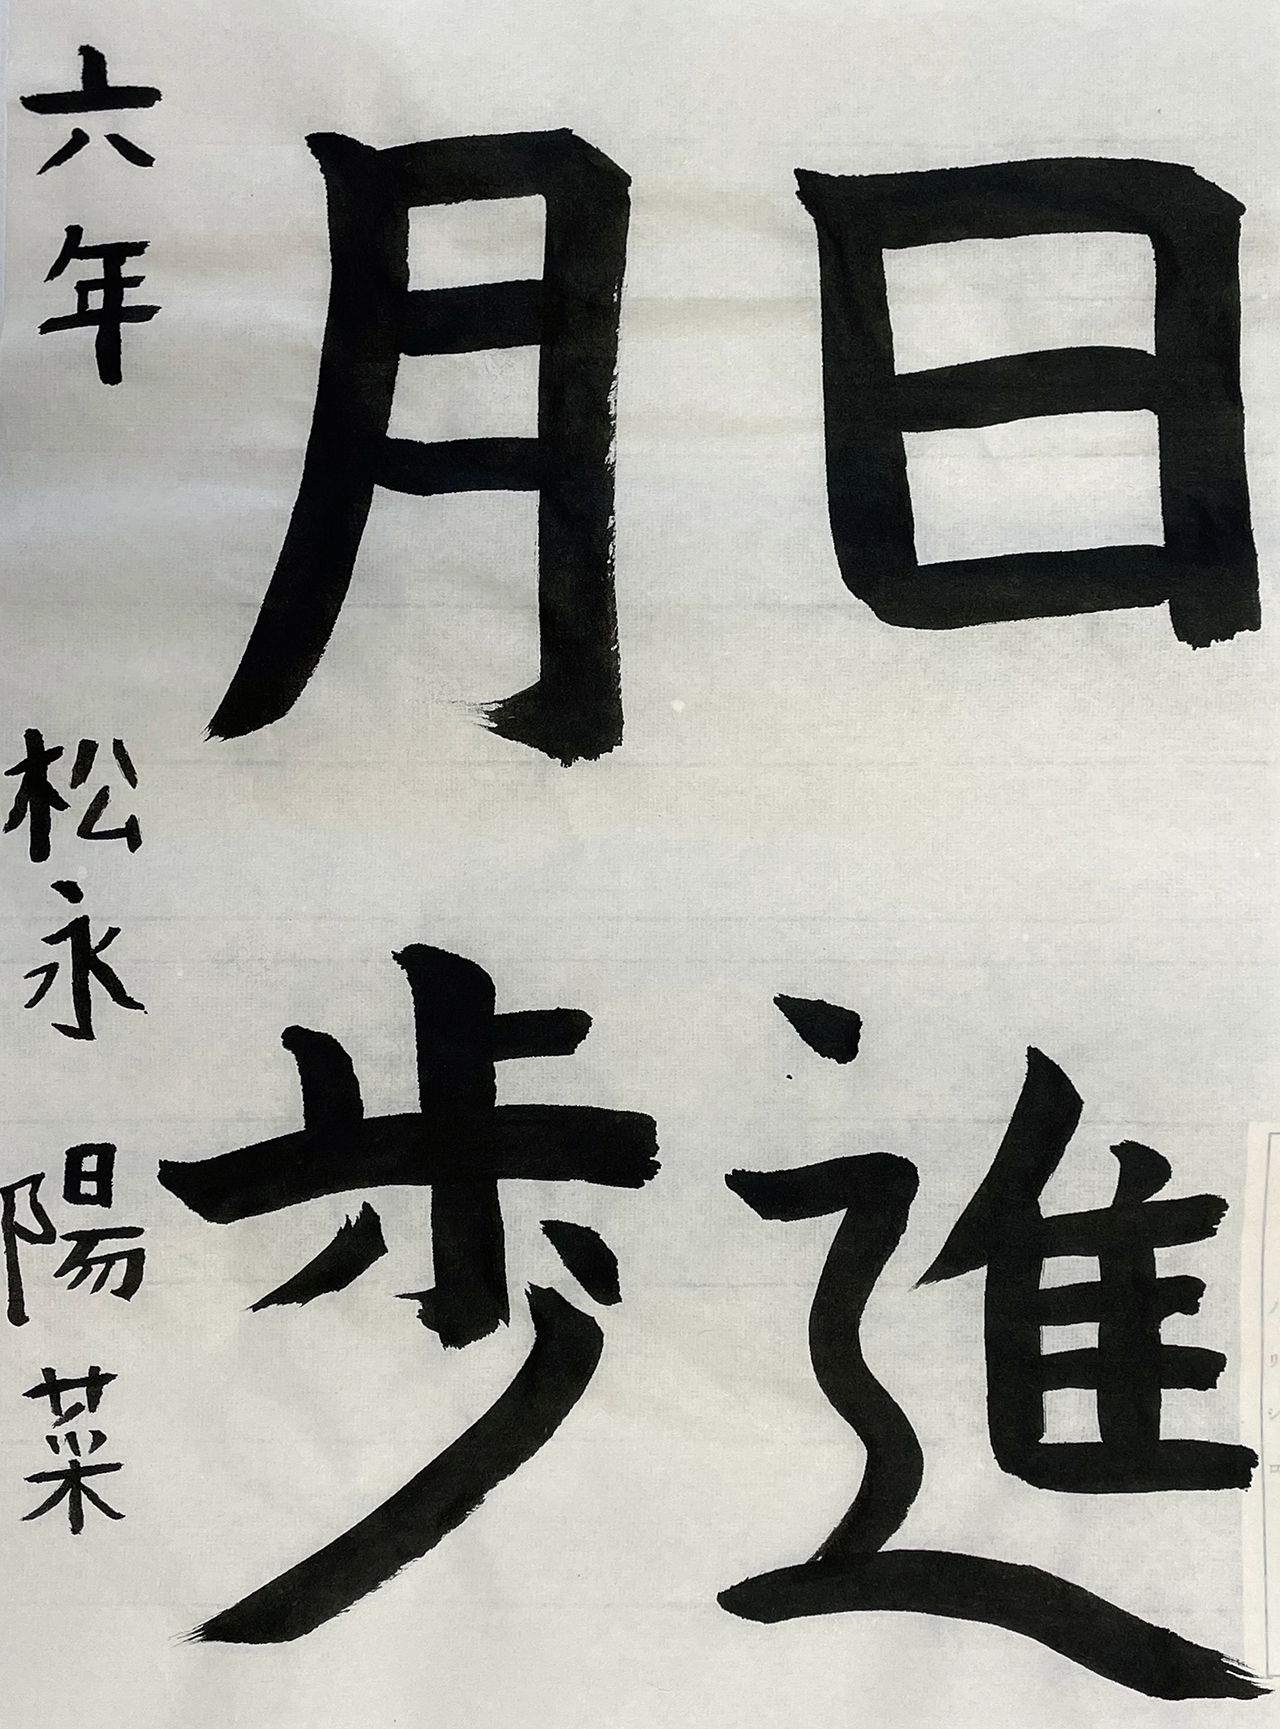 日進
月歩
六年 松永 陽菜